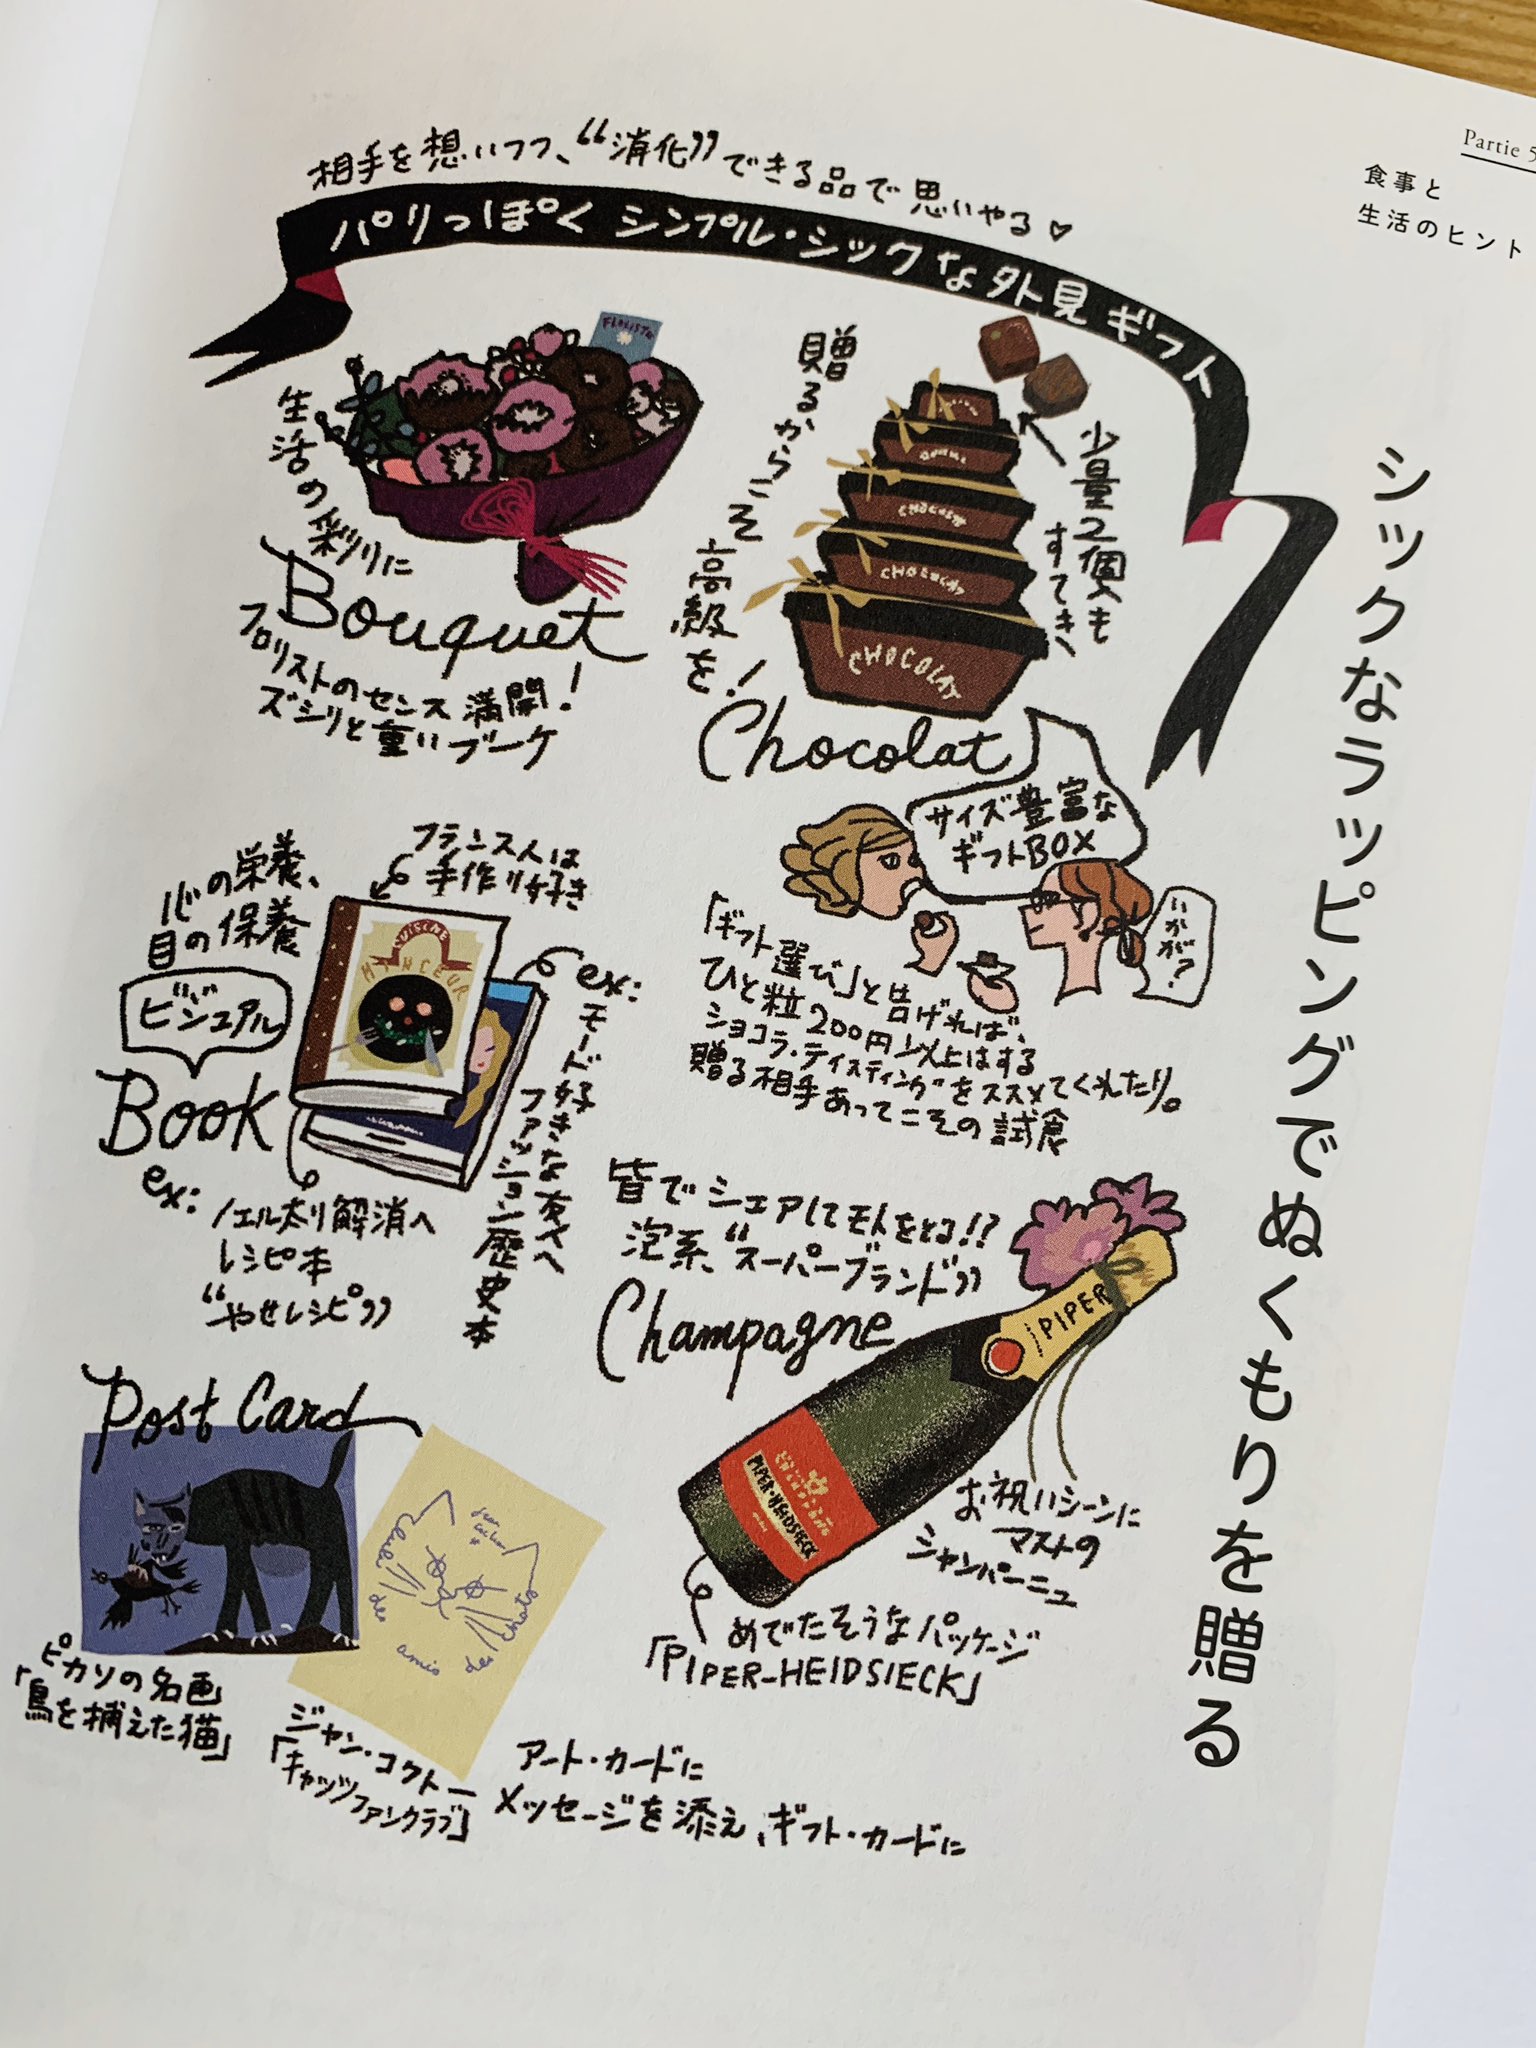 Partie 5
食事と
生活のヒント
シックなラッピングでぬくもりを贈る
相手を想いつつ、“消化”できる品で思いやる♡
パリっぽく シンプル・シックな外見ギフト
FLORISTE
生活の彩りに
Bouquet
フロリストのセンス満開!
ズシリと重いブーケ
贈るからこそ
高級を!
少量2個も
すてき
CHOCOLAT
Chocolat
サイズ豊富な
ギフトBOX
いかが?
「ギフト選び」と告げれば、
ひと粒200円以上はする
ショコラ・ティスティングをススメてくれたり。
贈る相手あってこその試食
心の栄養、
目の保養
ビジュアル
Book
フランス人は
手作り好き
CUISINE
MINCEUR
ex:
モード好きな友へ
ファッション歴史本
ex:
ノエル太り解消へ
レシピ本
“やせレシピ”
皆でシェアしてモトをとる!?
泡系、“スーパーブランド”
Champagne
PIPER
PIPER-HEIDSIECK
お祝いシーンに
マストの
シャンパーニュ
めでたそうなパッケージ
「PIPER-HEIDSIECK」
Post Card
club des amis des chats
ピカソの名画
「鳥を捕えた猫」
ジャン・コクトー
「キャッツファンクラブ」
アート・カードに
メッセージを添え、ギフト・カードに